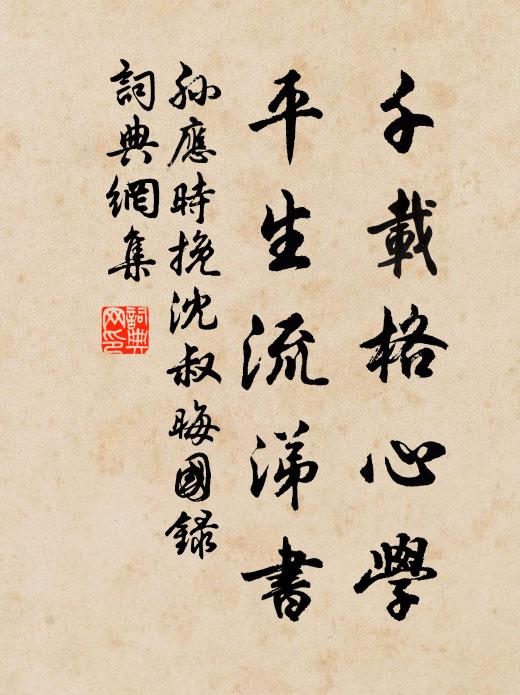 千載格心學
平生流涕書
孫應時挽沈叔晦國録
詞典網集
詞典
网印